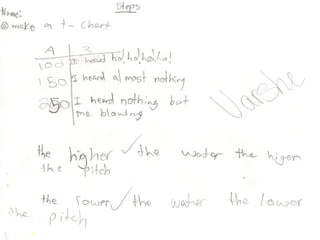 Steps
Name:
@ make a t- chart
A B
100 I heard ho! ho! ho! ho!
150 I heard almost nothing
250 I heard nothing but
me blowing
Varshe
the higher the water the higer
the pitch
the lower the water the lower
the pitch